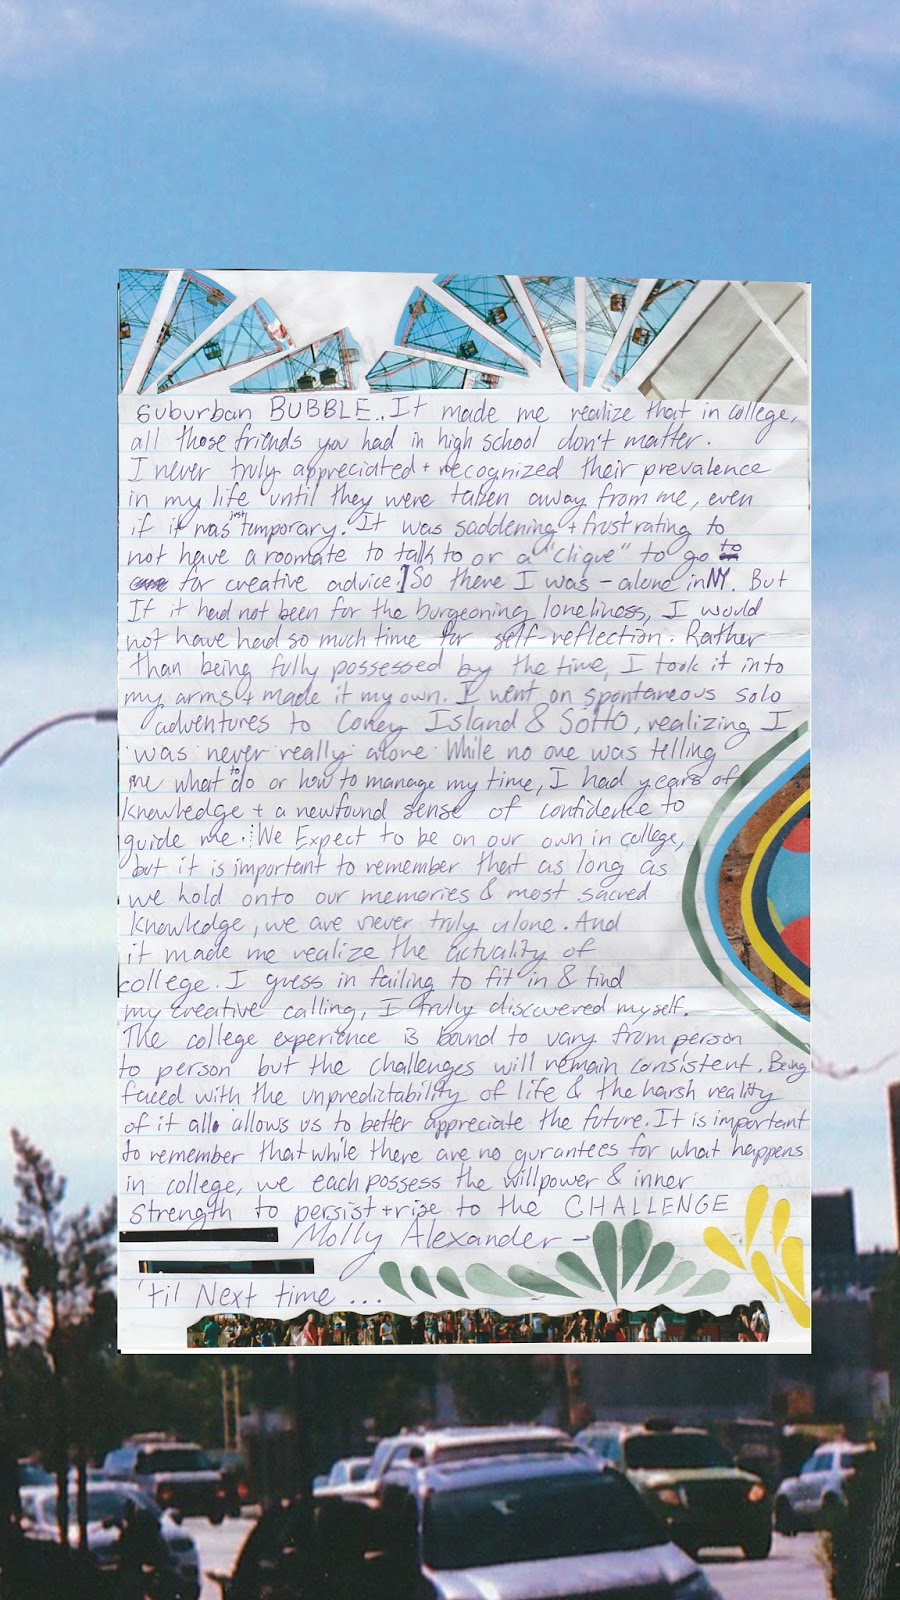 suburban BUBBLE.. It made me realize that in college,
all those friends you had in high school don't matter.
I never truly appreciated + recognized their prevalence
in my life until they were taken away from me, even
if it was just temporary. It was saddening + frustrating to
not have a roomate to talk to or a "clique" to go to
for creative advice. So there I was - alone in NY. But
If it had not been for the burgeoning loneliness, I would
not have had so much time for self-reflection. Rather
than being fully possessed by the time, I took it into
my arms + made it my own. I went on spontaneous solo
adventures to Coney Island & SoHO, realizing I
was never really alone. While no one was telling
me what to do or how to manage my time, I had years of
knowledge + a newfound sense of confidence to
guide me... We Expect to be on our own in college,
but it is important to remember that as long as
we hold onto our memories & most sacred
knowledge, we are never truly alone. And
it made me realize the actuality of
college. I guess in failing to fit in & find
my creative calling, I truly discovered myself.
The college experience is bound to vary from person
to person but the challenges will remain consistent. Being
faced with the unpredictability of life & the harsh reality
of it all allows us to better appreciate the future. It is important
to remember that while there are no gurantees for what happens
in college, we each possess the willpower & inner
strength to persist + rise to the CHALLENGE
Molly Alexander -
'til Next time ...